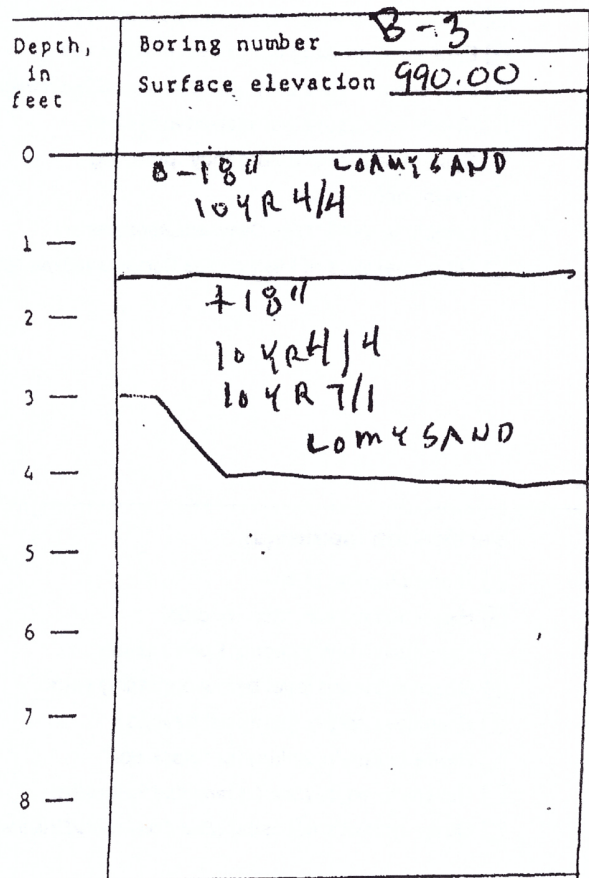 Depth,
in
feet
Boring number B-3
Surface elevation 990.00
0
0-18" LOAMY SAND
10YR 4/4
1
2
+18"
10YR4/4
3
10YR 7/1
LOMY SAND
4
5
6
7
8